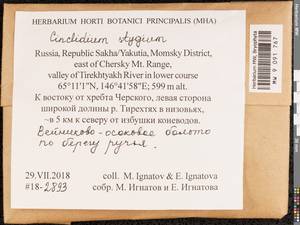 HERBARIUM HORTI BOTANICI PRINCIPALIS (MHA)
Cinclidium stygium
Russia, Republic Sakha/Yakutia, Momsky District,
east of Chersky Mt. Range,
valley of Tirekhtyakh River in lower course
65°11'1"N, 146°41'58"E; 599 m alt.
К востоку от хребта Черского, левая сторона
широкой долины р. Тирехтях в низовьях,
~в 5 км к северу от избушки коневодов.
Вейниково-осоковое болото
по берегу ручья.
29.VII.2018 coll. M. Ignatov & E. Ignatova
#18-2893 собр. М. Игнатов и Е. Игнатова
Herbarium MHA, Bryophyta
MW 9 091 767